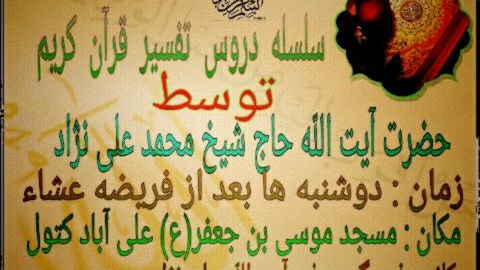 سلسله دروس تفسیر قرآن کریم
توسط
حضرت آیت الله حاج شیخ محمد علی نژاد
زمان : دوشنبه ها بعد از فریضه عشاء
مکان : مسجد موسی بن جعفر(ع) علی آباد کتول